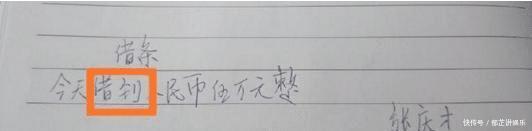 借条
今天借到人民币伍万元整
张庆才
快传号 / 郁芷讲娱乐